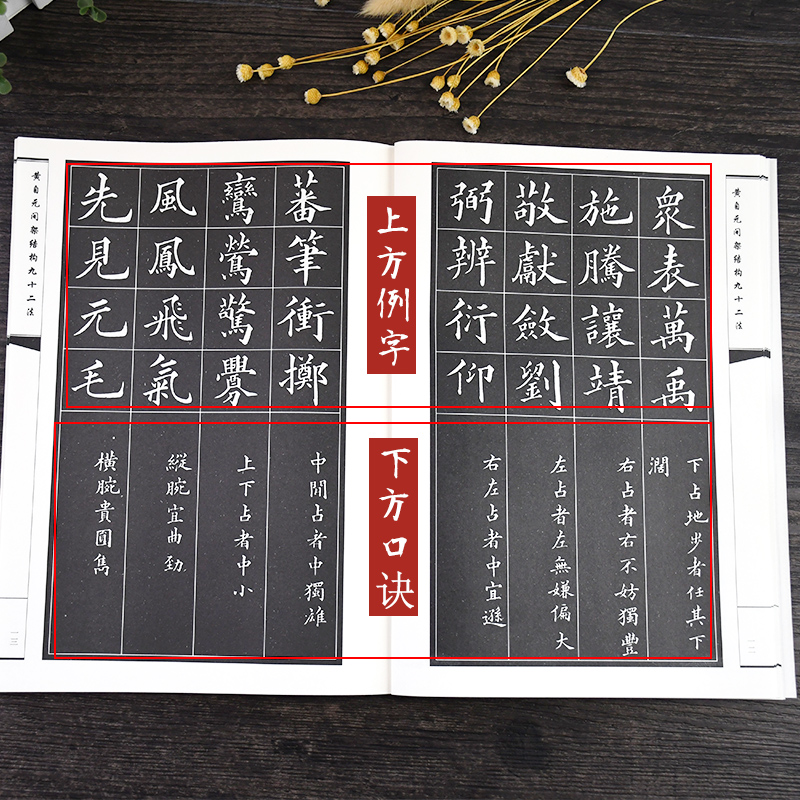 黄自元间架结构九十二法
一二
衆表萬禹
下占地步者任其下
濶
施騰讓靖
右占者右不妨獨豐
敬獻斂劉
左占者左無嫌偏大
弼辨衍仰
右左占者中宜遜
上方例字
下方口诀
蕃筆衝擲
中閒占者中獨雄
鸞鶯驚釁
上下占者中小
風鳳飛氣
縱腕宜曲勁
先見元毛
橫腕貴圓雋
黄自元间架结构九十二法
一三